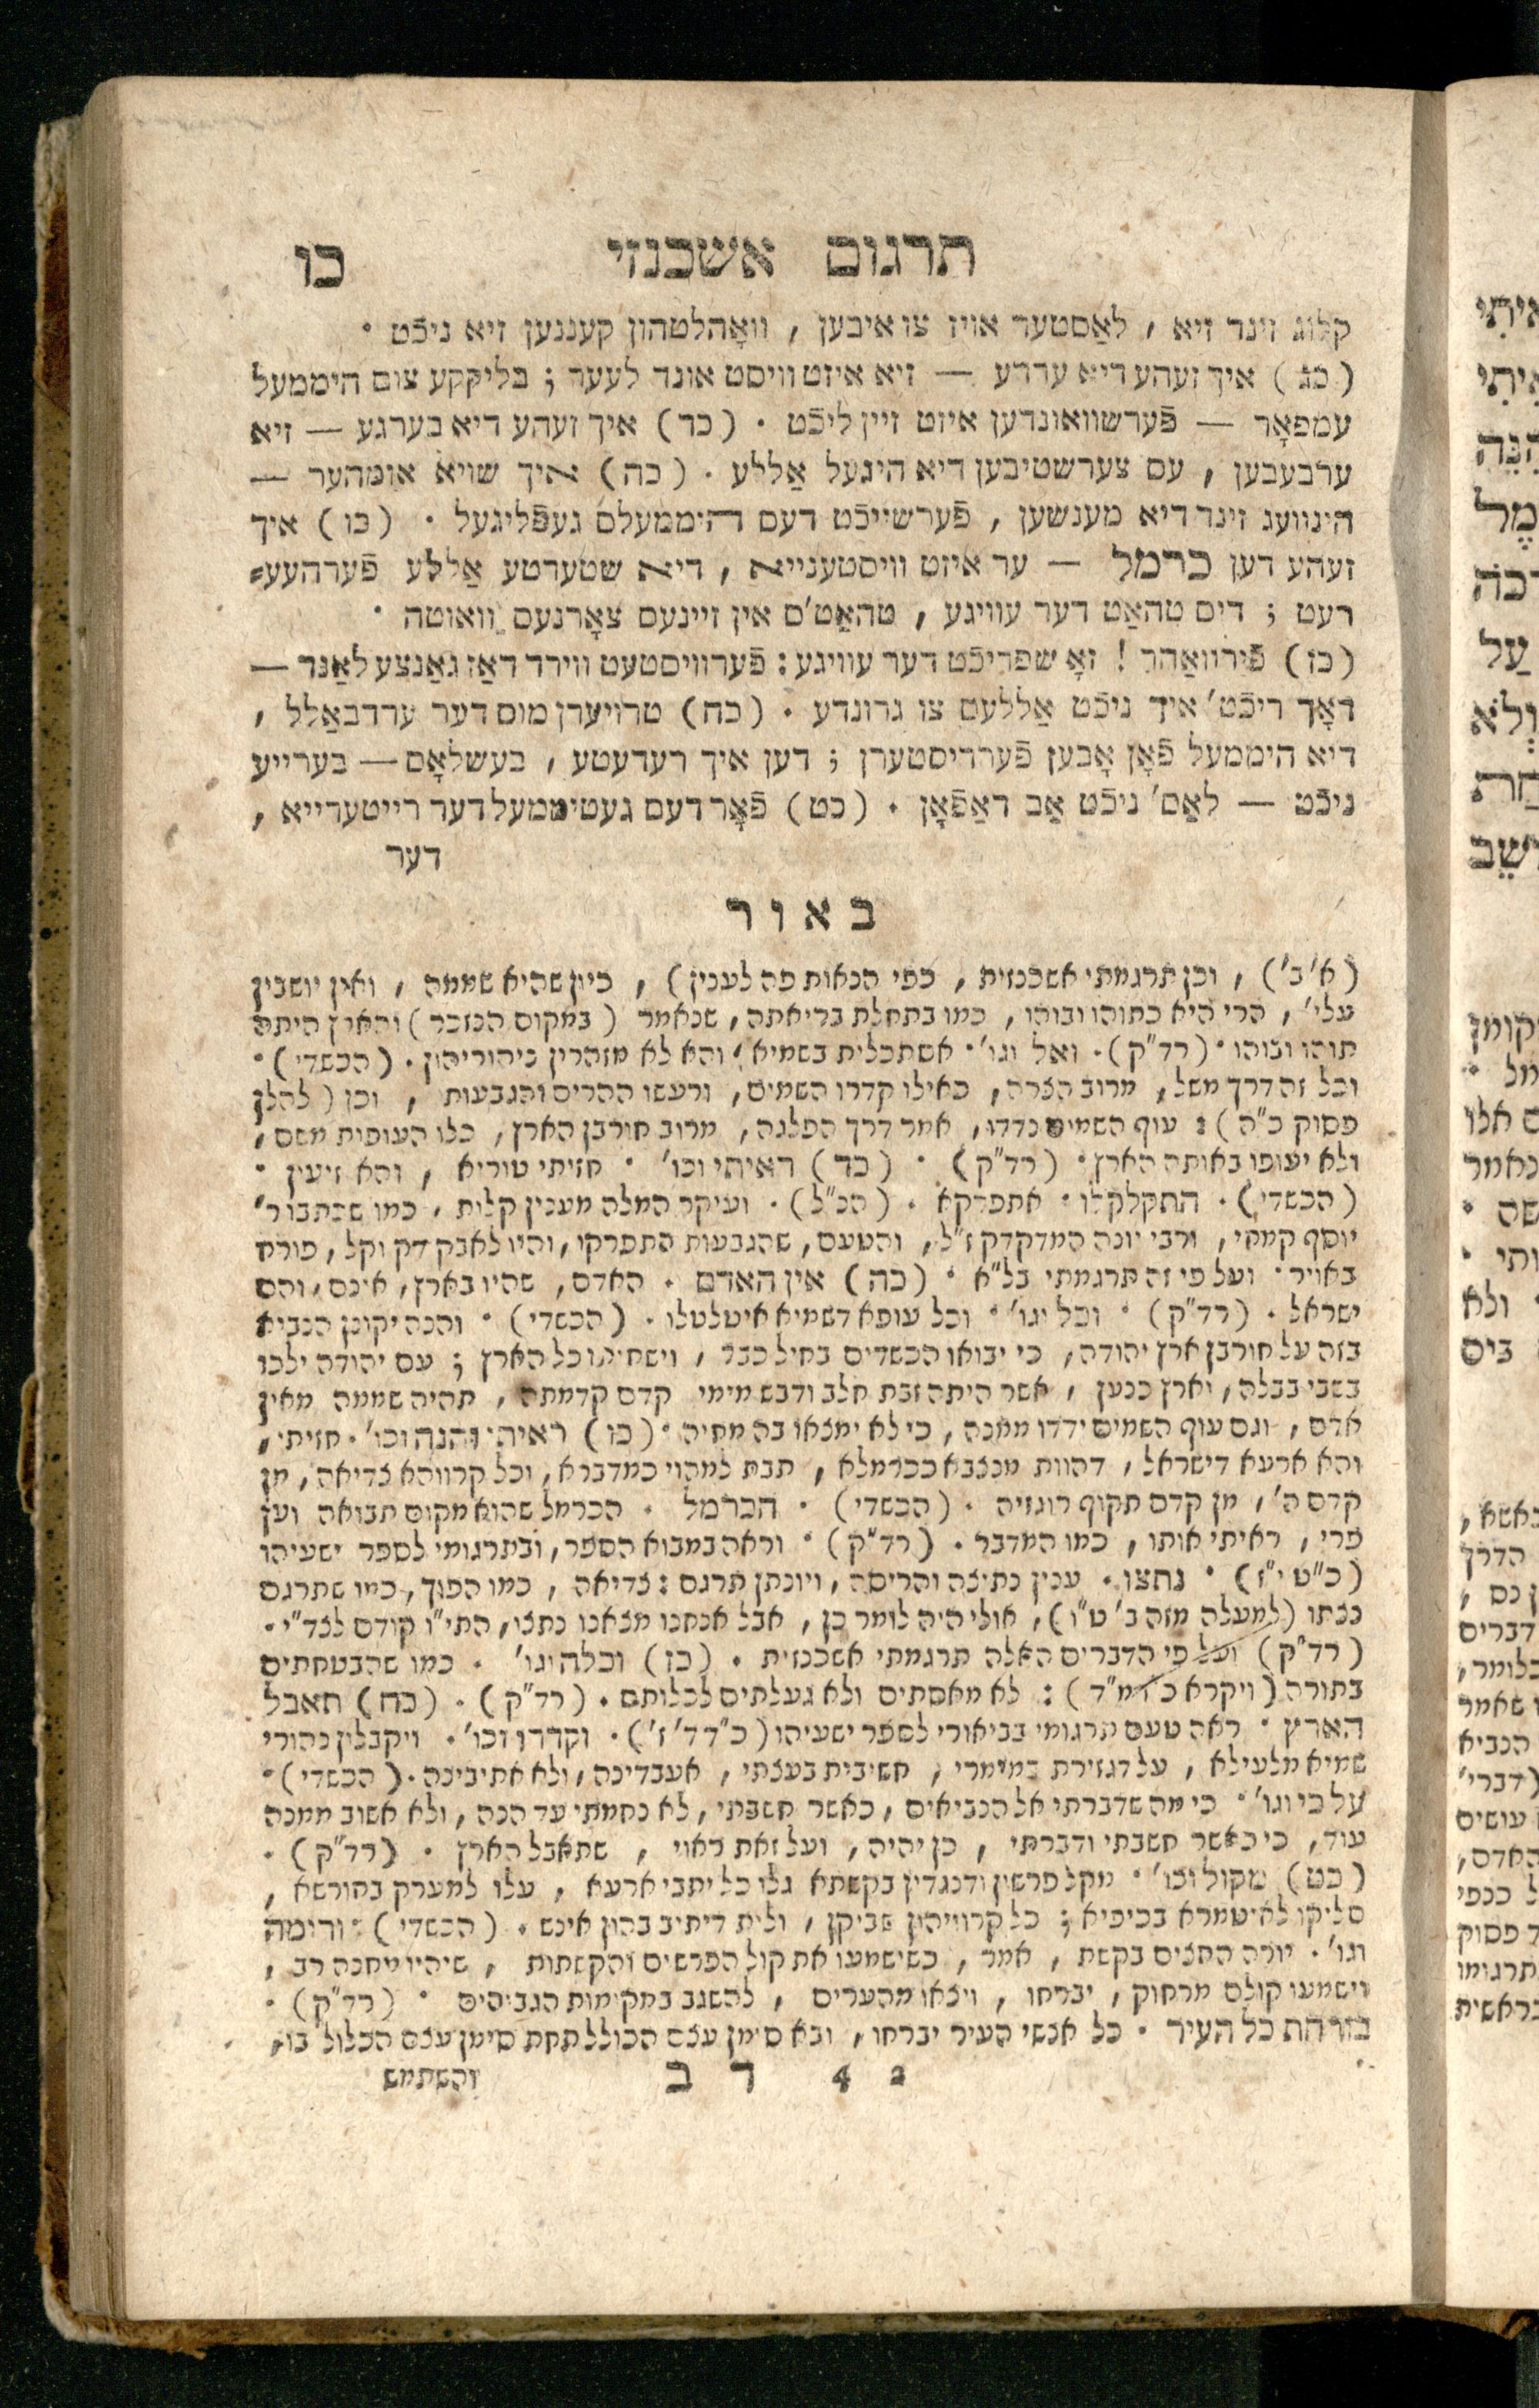 תרגום אשכנזי כו
קלוג זינד זיא , לאַסטער אויז צו איבען , וואָהלטהון קעננען זיא ניכֿט .
(כג) איך זעהע דיא ערדע — זיא איזט וויסט אונד לעער ; בליקקע צום היממעל
עמפאָר — פֿערשוואונדען איזט זיין ליכֿט . (כד) איך זעהע דיא בערגע — זיא
ערבעבען , עס צערשטיבען דיא היגעל אַללע . (כה) איך שויא אומהער —
הינוועג זינד דיא מענשען , פֿערשייכֿט דעם היממעלס געפֿליגעל . (כו) איך
זעהע דען כרמל — ער איזט וויסטענייא , דיא שטערטע אַללע פֿערהעע=
רעט ; דיס טהאַט דער עוויגע , טהאַט'ס אין זיינעם צאָרנעס וואוטה .
(כז) פֿירוואַהר ! זאָ שפריכֿט דער עוויגע : פֿערוויסטעט ווירד דאַז גאַנצע לאַנד —
דאָך ריכֿט' איך ניכֿט אַללעס צו גרונדע . (כח) טרויערן מוס דער ערדבאַלל ,
דיא היממעל פֿאָן אָבען פֿערדיסטערן ; דען איך רעדעטע , בעשלאָס — בערייע
ניכֿט — לאַס' ניכֿט אַב דאַפֿאָן . (כט) פֿאָר דעם געטיממעל דער רייטערייא ,
דער
באור
(א' ב') , וכן תרגמתי אשכנזית , כפי הנאות פה לענין) , כיון שהיא שממה , ואין יושבין
עלי' , הרי היא כתוהו ובוהו , כמו בתחלת בריאתה , שנאמר (במקום הנזכר) והארץ היתה
תוהו ובוהו . (רד"ק) . ואל וגו' . אסתכלית בשמיא , והא לא מזהרין ניהוריהון . (הכשדי) .
וכל זה דרך משל , מרוב הצרה , כאילו קדרו השמים , ורעשו ההרים והגבעות , וכן (להלן
פסוק כ"ה) : עוף השמים נדדו , אמר דרך הפלגה , מרוב חורבן הארץ , כלו העופות משם ,
ולא יעופו באותה הארץ . (רד"ק) . (כד) ראיתי וכו' . חזיתי טוריא , והא זיעין .
(הכשדי) . התקלקלו . אתפרקא . (הנ"ל) . ועיקר המלה מענין קלות , כמו שכתבו ר'
יוסף קמחי , ורבי יונה המדקדק ז"ל , והטעם , שהגבעות התפרקו , והיו לאבק דק וקל , פורח
באויר . ועל פי זה תרגמתי בל"א . (כה) אין האדם . האדם , שהיו בארץ , אינם , והם
ישראל . (רד"ק) . וכל וגו' . וכל עופא דשמיא איטלטלו . (הכשדי) . והנה יקונן הנביא
בזה על חורבן ארץ יהודה , כי יבואו הכשדים בחיל כבד , וישחיתו כל הארץ ; עם יהודה ילכו
בשבי בבלה , וארץ כנען , אשר היתה זבת חלב ודבש מימי קדם קדמתה , תהיה שממה מאין
אדם , וגם עוף השמים ידדו ממנה , כי לא ימצאו בה מחיה . (כו) ראיתי והנה וכו' . חזיתי ,
והא ארעא דישראל , דהוות מנצבא ככרמלא , תבת למהוי כמדברא , וכל קרווהא צדיאה , מן
קדם ה' , מן קדם תקוף רוגזיה . (הכשדי) . הכרמל . הכרמל שהוא מקום תבואה ועץ
פרי , ראיתי אותו , כמו המדבר . (רד"ק) . וראה במבוא הספר , ובתרגומי לספר ישעיהו
(כ"ט י"ז) . נתצו . ענין נתיצה והריסה , ויונתן תרגם : צדיאה , כמו הפוך , כמו שתרגם
נצתו (למעלה מזה ב' ט"ו) , אולי היה לומר כן , אבל אנחנו מצאנו נתצו , התי"ו קודם לצד"י .
(רד"ק) ועל פי הדברים האלה תרגמתי אשכנזית . (כז) וכלה וגו' . כמו שהבטחתים
בתורה (ויקרא כ"ו מ"ד) : לא מאסתים ולא געלתים לכלותם . (רד"ק) . (כח) תאבל
הארץ . ראה טעם תרגומי בביאורי לספר ישעיהו (כ"ד ד' ז') . וקדרו וכו' . ויקבלין נהורי
שמיא מלעילא , על דגזירת במימרי , חשיבית בעצתי , אעבדינה , ולא אתיבינה . (הכשדי) .
על כי וגו' . כי מה שדברתי אל הנביאים , כאשר חשבתי , לא נחמתי עד הנה , ולא אשוב ממנה
עוד , כי כאשר חשבתי ודברתי , כן יהיה , ועל זאת ראוי , שתאבל הארץ . (רד"ק) .
(כט) מקול וכו' . מקל פרשין ודנגדין בקשתא גלו כל יתבי ארעא , עלו למערק בחורשא ,
סליקו לאיטמרא בכיפיא ; כל קרוייהון שביקן , ולית דיתיב בהון אינש . (הכשדי) . ורומה
וגו' . יורה החצים בקשת , אמר , כשישמעו את קול הפרשים והקשתות , שיהיו מחנה רב ,
וישמעו קולם מרחוק , יברחו , ויצאו מהערים , להשגב במקומות הגביהים . (רד"ק) .
בורחת כל העיר . כל אנשי העיר יברחו , ובא סימן עצם הכולל תחת סימן עצם הכלול בו ,
2 4 ד ב והשתמש